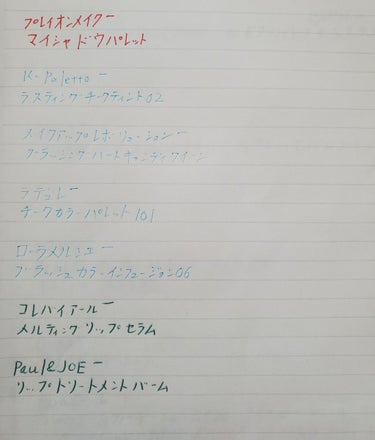 プレイオンメイクー
マイシャドウパレット
K-Palettoー
ラスティングチークティント02
メイクアップレボリューションー
ブラッシングハートキャンディクイーン
ラデュレー
チークカラーパレット101
ローラメルシエー
ブラッシュカラーインフュージョン06
コレハイアールー
メルティングリップセラム
Paul&JOEー
リップトリートメントバーム